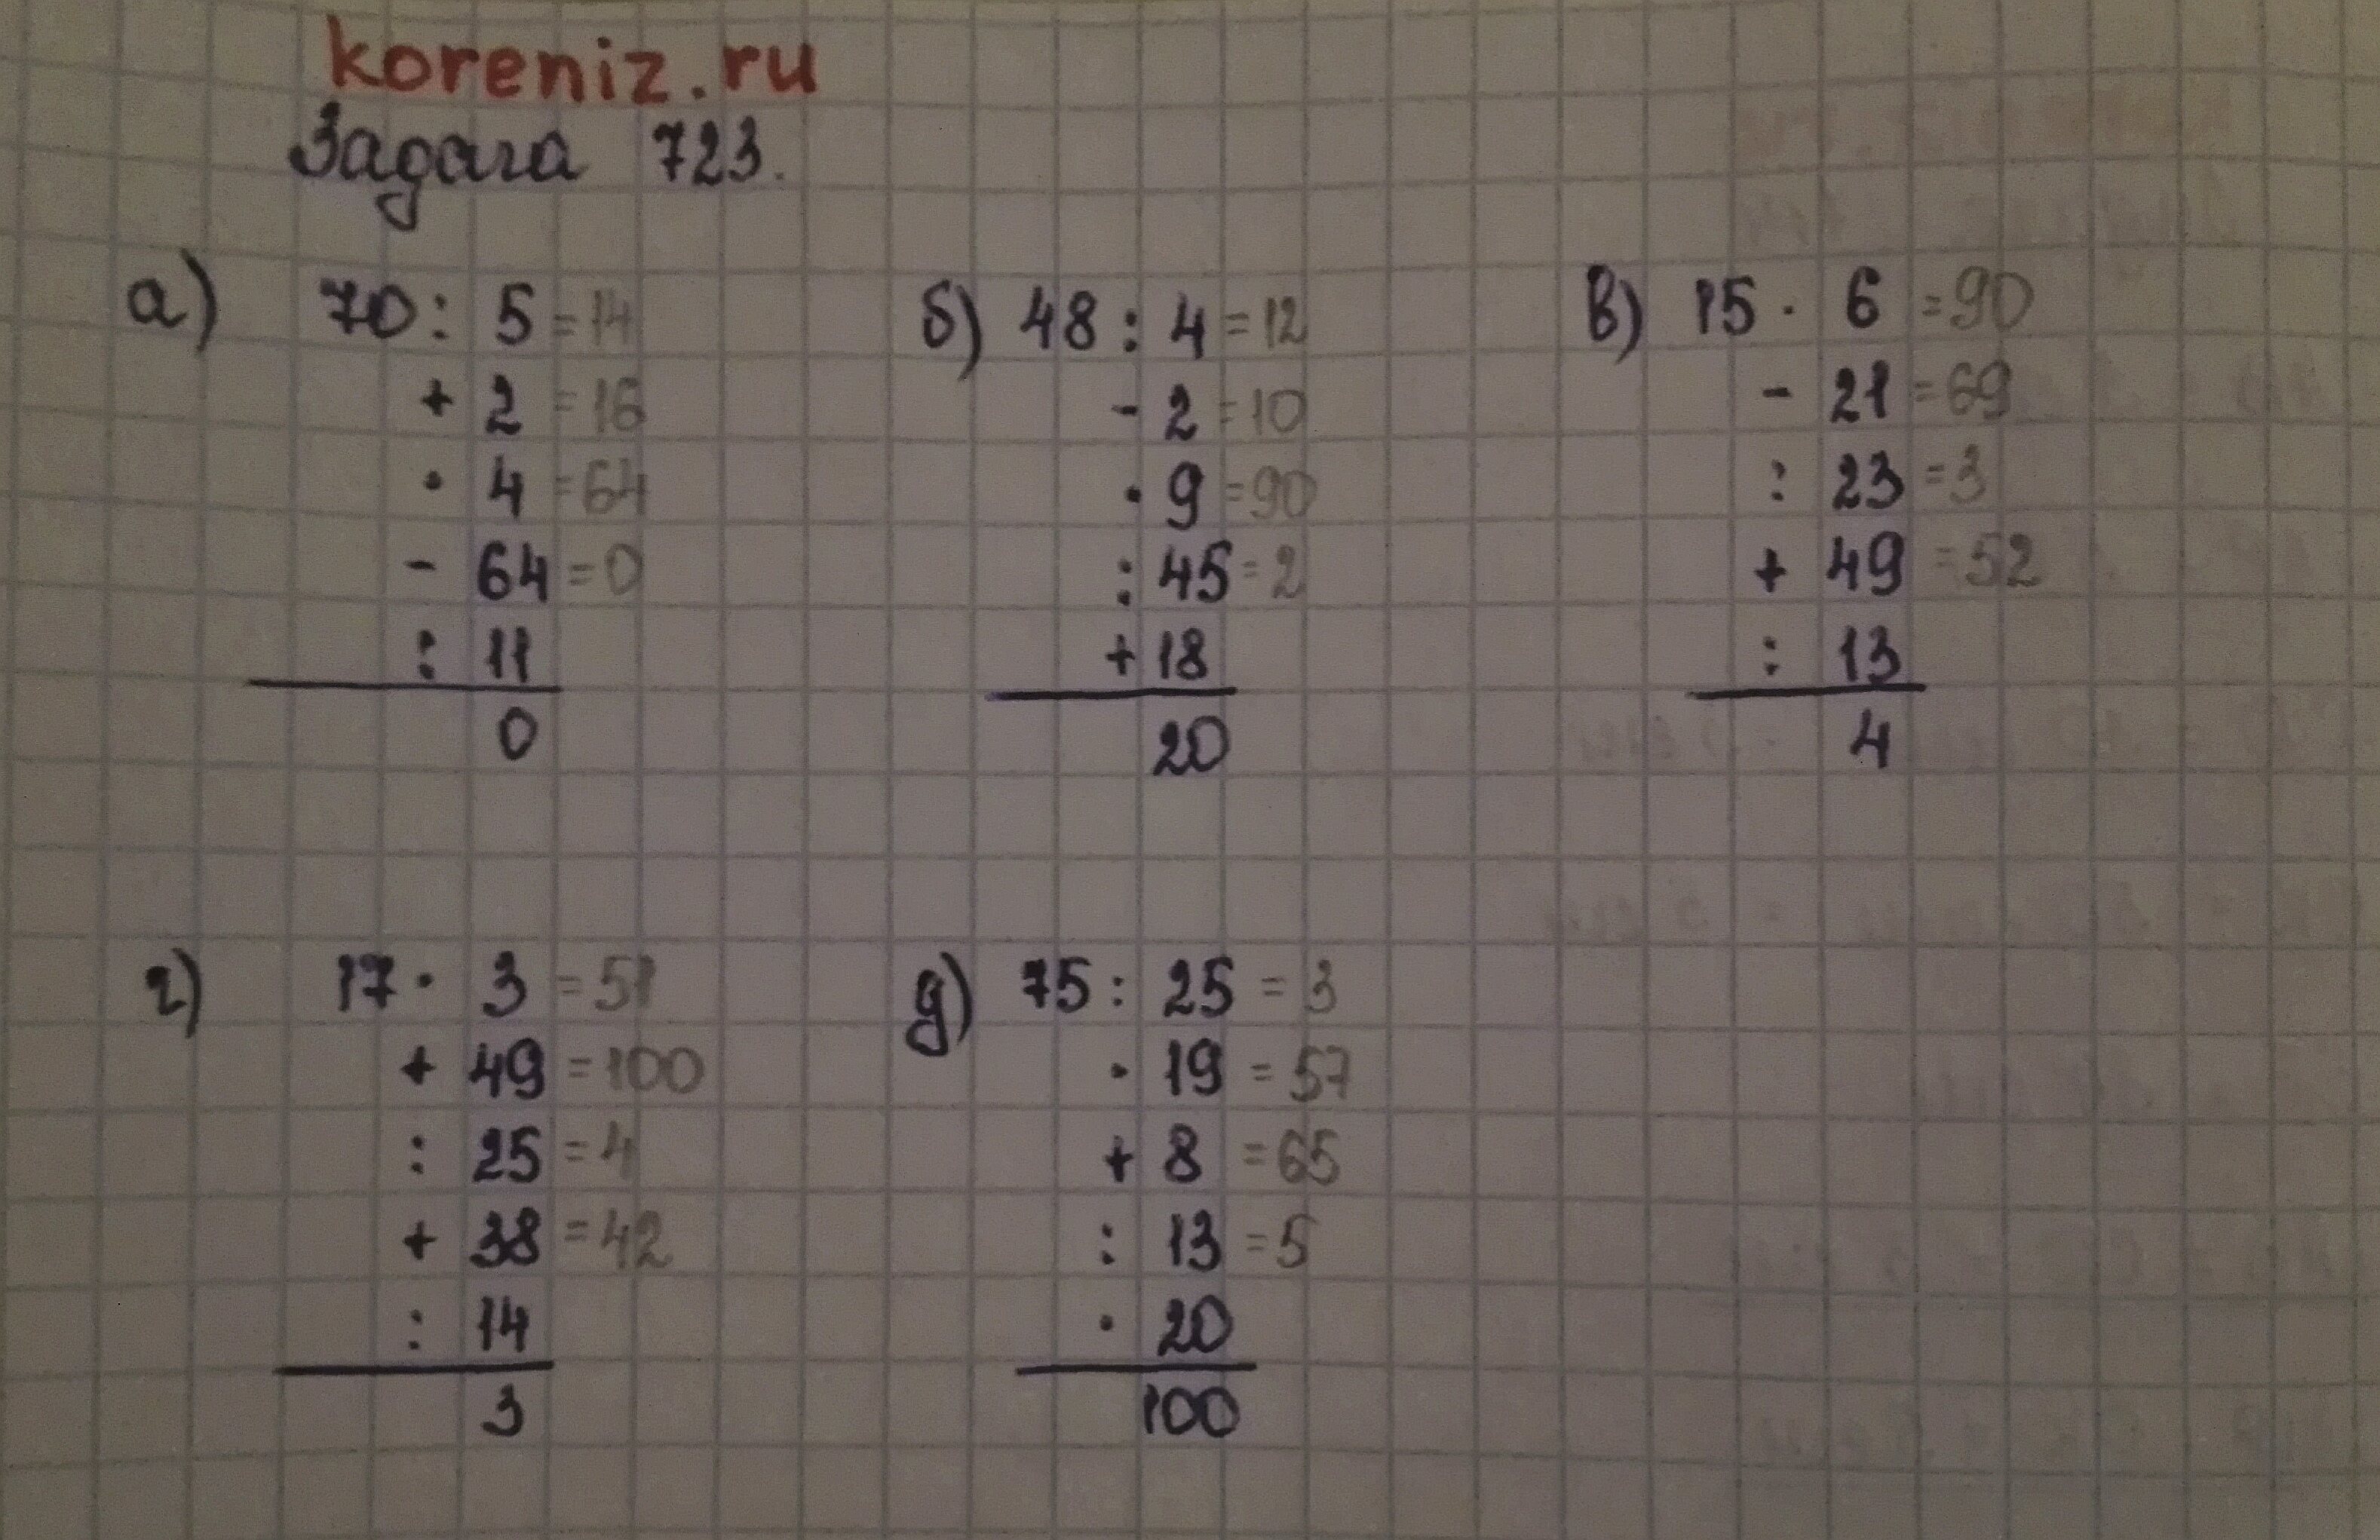 koreniz.ru
Задача 723.
а) 70 : 5 = 14
+ 2 = 16
· 4 = 64
- 64 = 0
: 11
0
б) 48 : 4 = 12
- 2 = 10
· 9 = 90
: 45 = 2
+ 18
20
в) 15 · 6 = 90
- 21 = 69
: 23 = 3
+ 49 = 52
: 13
4
г) 17 · 3 = 51
+ 49 = 100
: 25 = 4
+ 38 = 42
: 14
3
д) 75 : 25 = 3
· 19 = 57
+ 8 = 65
: 13 = 5
· 20
100